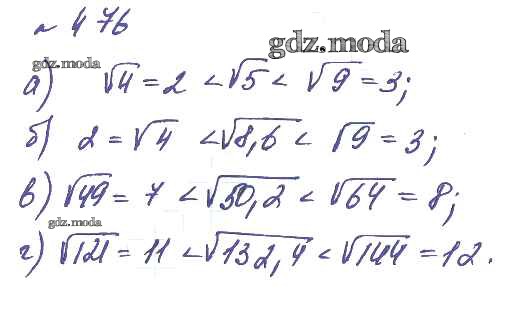 № 476
gdz.moda
gdz.moda
а) √4 = 2 < √5 < √9 = 3;
б) 2 = √4 < √8,6 < √9 = 3;
в) √49 = 7 < √50,2 < √64 = 8;
gdz.moda
г) √121 = 11 < √132,4 < √144 = 12.